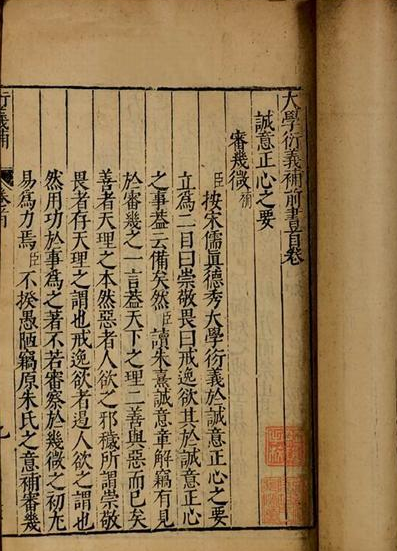 大學衍義補前書首卷
誠意正心之要
審幾微補
臣按宋儒真德秀大學衍義於誠意正心之要
立爲二目曰崇敬畏曰戒逸欲其於誠意正心
之事葢云備矣然臣讀朱熹誠意章解竊有見
於審幾之一言葢天下之理二善與惡而已矣
善者天理之本然惡者人欲之邪穢所謂崇敬
畏者存天理之謂也戒逸欲者遏人欲之謂也
然用功於事爲之著不若審察於幾微之初尤
易爲力焉臣不揆愚陋竊原朱氏之意補審幾
衍義補
卷首